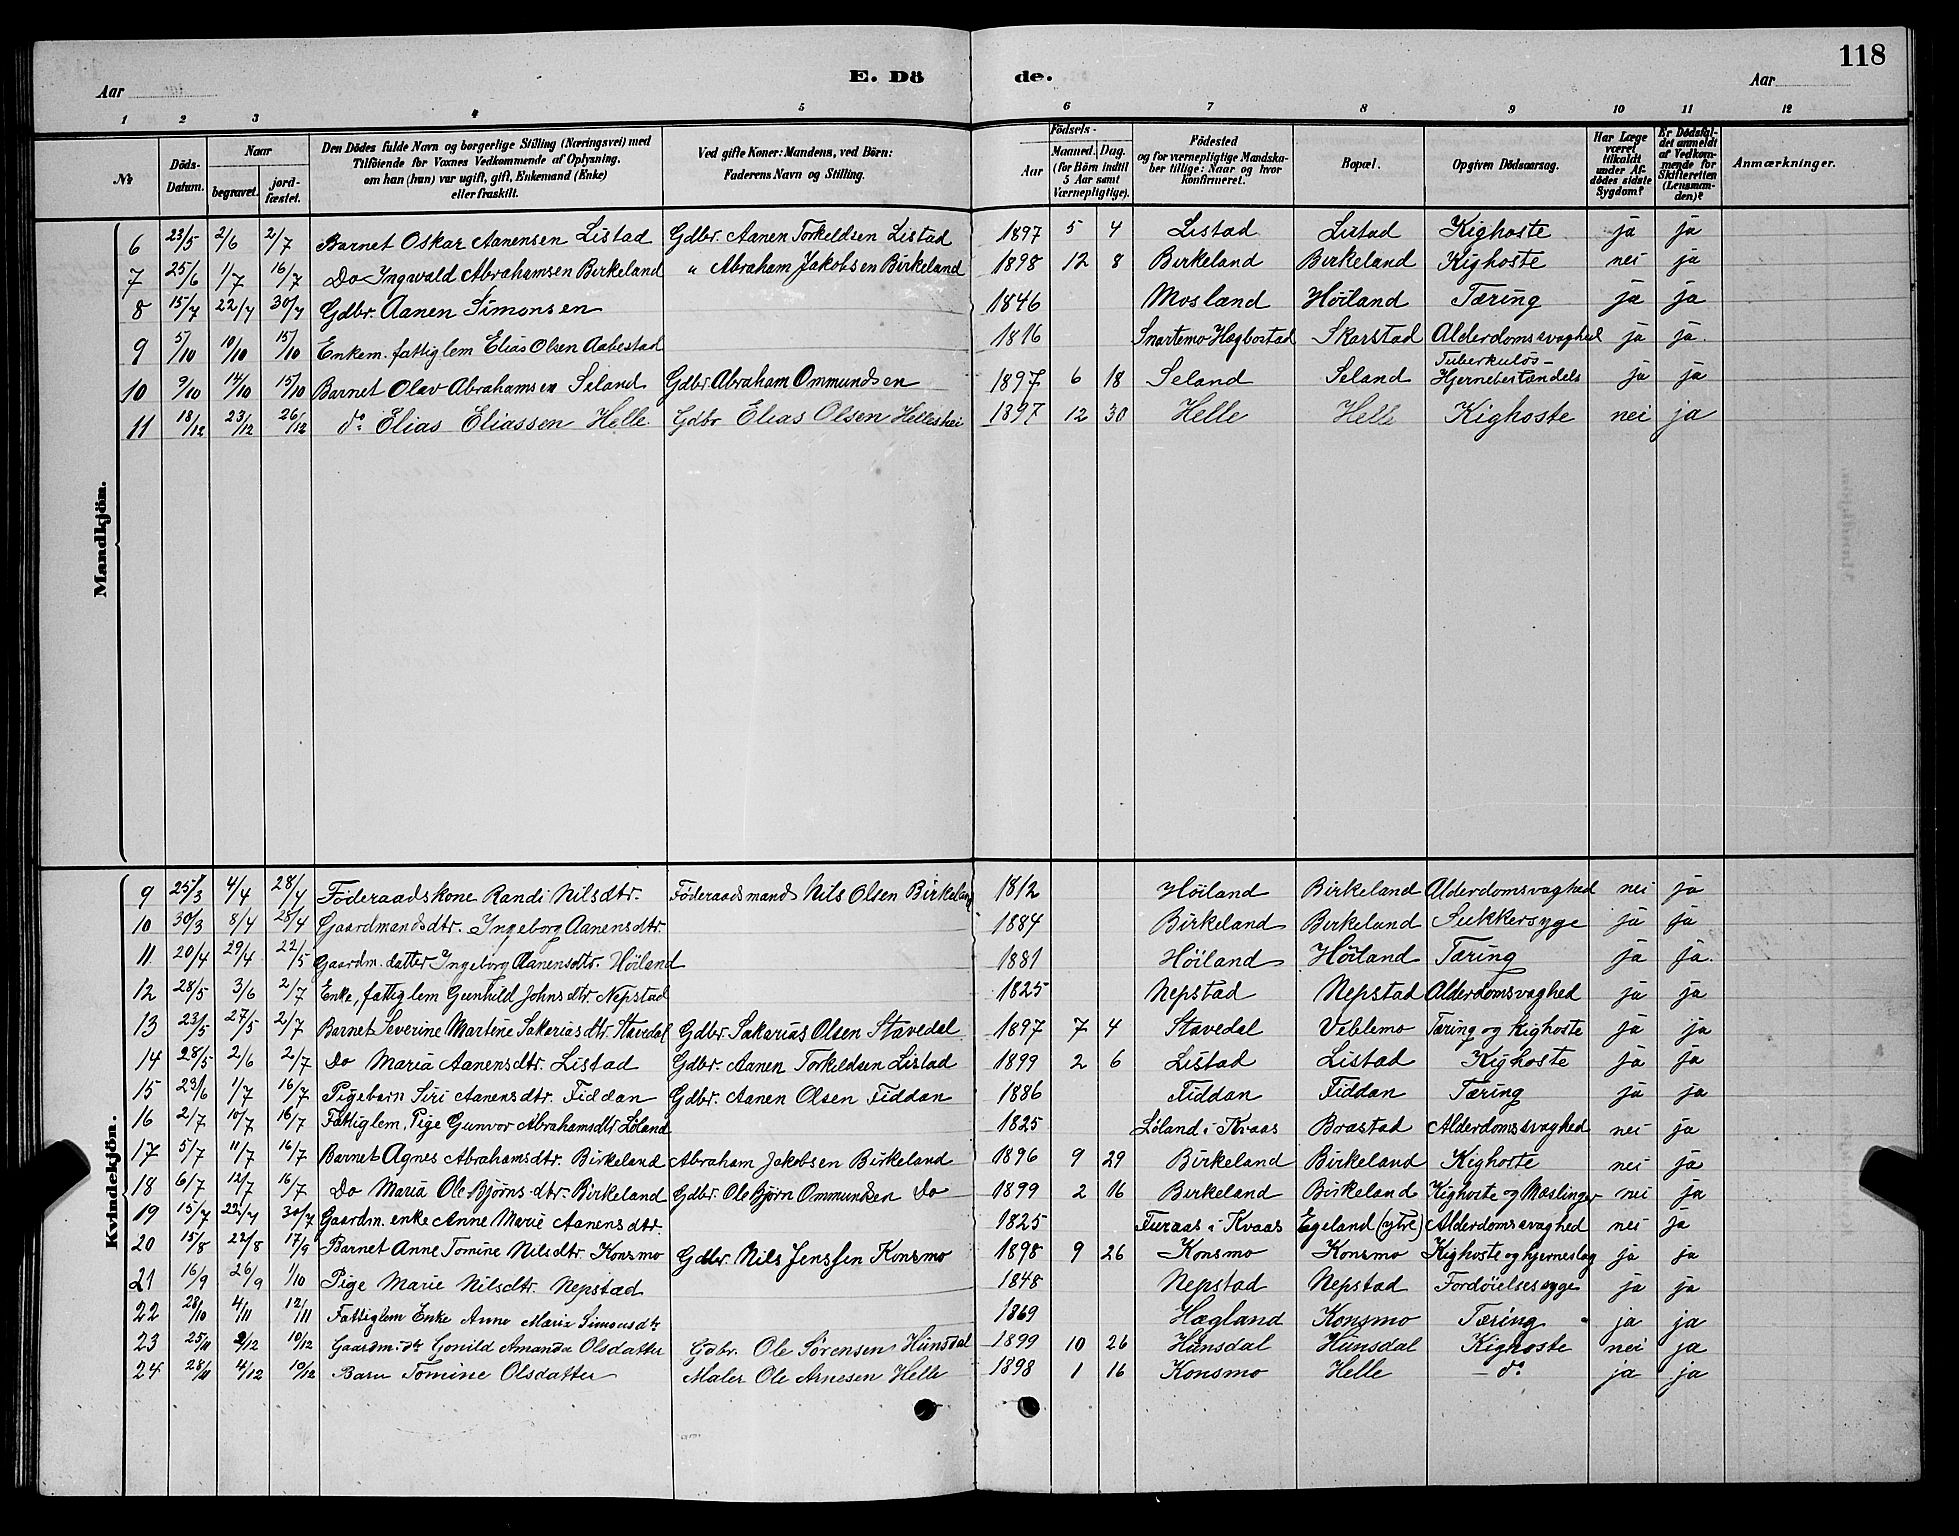 118
E. Dö de.
Aar Aar
1 2 3 4 5 6 7 8 9 10 11 12
No
Döds-Datum.
Naar begravet. jordfæstet.
Den Dödes fulde Navn og borgerlige Stilling (Næringsvei) med Tilföiende for Voxnes Vedkommende af Oplysning, om han (hun) var ugift, gift, Enkemand (Enke) eller fraskilt.
Ved gifte Koner: Mandens, ved Börn: Faderens Navn og Stilling.
Födsels-
Aar Maaned. Dag. (for Börn indtil 5 Aar samt Værnepligtige).
Födested og for værnepligtige Mandskaber tillige: Naar og hvor konfirmeret.
Bopæl.
Opgiven Dödsaarsag.
Har Læge været tilkaldt under Afdödes sidste Sygdom?
Er Dödsfaldet anmeldt af Vedkommende for Skifteretten (Lensmanden)?
Anmærkninger.
Mandkjön.
6 23/5 2/6 2/7 Barnet Oskar Aanensen Listad Gdbr. Aanen Torkeldsen Listad 1897 5 4 Listad Listad Kighoste ja ja
7 25/6 1/7 16/7 Do Ingvald Abrahamsen Birkeland " Abraham Jakobsen Birkeland 1898 12 8 Birkeland Birkeland Kighoste nei ja
8 15/7 22/7 30/7 Gdbr. Aanen Simonsen 1846 Mosland Höiland Tæring ja ja
9 5/10 10/10 15/10 Enkem. fattiglem Elias Olsen Aabestad 1816 Snartemo Hægbostad Skarstad Alderdomssvaghed ja ja.
10 9/10 14/10 15/10 Barnet Olav Abrahamsen Seland Gdbr. Abraham Ommundsen 1897 6 18 Seland Seland Tuberkuløs- Hjernebetændels ja ja
11 18/12 23/12 26/12 do Elias Eliassen Helle Gdbr Elias Olsen Helleshei 1897 12 30 Helle Helle Kighoste nei ja
Kvindekjön.
9 25/3 4/4 28/4 Föderaadskone Randi Nilsdtr. Föderaadsmand Nils Olsen Birkeland 1812 Höiland Birkeland Alderdomsvaghed nei ja
10 30/3 8/4 28/4 Gaardmandsdtr. Ingeborg Aanensdtr. 1884 Birkeland Birkeland Sukkersyge ja ja
11 20/4 29/4 22/5 Gaardm. datter Ingeborg Aanensdtr. Höiland 1881 Höiland Höiland Tæring ja ja.
12 28/5 3/6 2/7 Enke, fattiglem Gunhild Johnsdtr. Nepstad 1825 Nepstad Nepstad Alderdomsvaghed ja ja
13 23/5 27/5 2/7 Barnet Severine Martine Sakariasdtr. Stavedal Gdbr. Sakarias Olsen Stavedal 1897 7 4 Stavedal Veblemo Tæring og Kighoste ja ja
14 28/5 2/6 2/7 Do Maria Aanensdtr. Listad Gdbr. Aanen Torkeldsen Listad 1899 2 6 Listad Listad Kighoste ja ja
15 23/6 1/7 16/7 Pigebarn Siri Aanensdtr. Fiddan Gdbr. Aanen Olsen Fiddan 1886 Fiddan Fiddan Tæring ja ja
16 2/7 10/7 16/7 Fattiglem, Pige Gunvor Abrahamsdtr Løland 1825 Løland i Kvaas Brastad Alderdomssvaghed nei ja
17 5/7 11/7 16/7 Barnet Agnes Abrahamsdtr. Birkeland Abraham Jakobsen Birkeland 1896 9 29 Birkeland Birkeland Kighoste nei ja
18 6/7 12/7 16/7 Do Maria Ole Bjørnsdtr. Birkeland Gdbr. Ole Bjørn Ommundsen Do 1899 2 16 Birkeland Birkeland Kighoste og Mæslinger nei ja
19 15/7 22/7 30/7 Gaardm. enke Anne Marie Aanensdtr. 1825 Turaas i Kvaas Egeland (ytre) Alderdomssvaghed nei ja
20 15/8 22/8 17/9 Barnet Anne Tomine Nilsdtr. Konsmo Gdbr. Nils Jenssen Konsmo 1898 9 26 Konsmo Konsmo Kighoste og hjerneslag ja ja
21 16/9 26/9 1/10 Pige Marie Nilsdtr. Nepstad 1848 Nepstad Nepstad Fordøielsessyge ja ja
22 28/10 4/11 12/11 Fattiglem Enke Anne Marie Simonsdtr 1869 Hægland Konsmo Tæring ja ja
23 25/11 2/12 10/12 Gaardm.-dtr Gonild Amanda Olsdatter Gdbr. Ole Sørensen Hunsdal 1899 10 26 Hunsdal Hunsdal Kighoste nei ja
24 28/11 4/12 10/12 Barn Tomine Olsdatter Maler Ole Arnesen Helle 1898 1 16 Konsmo Helle — do ja ja